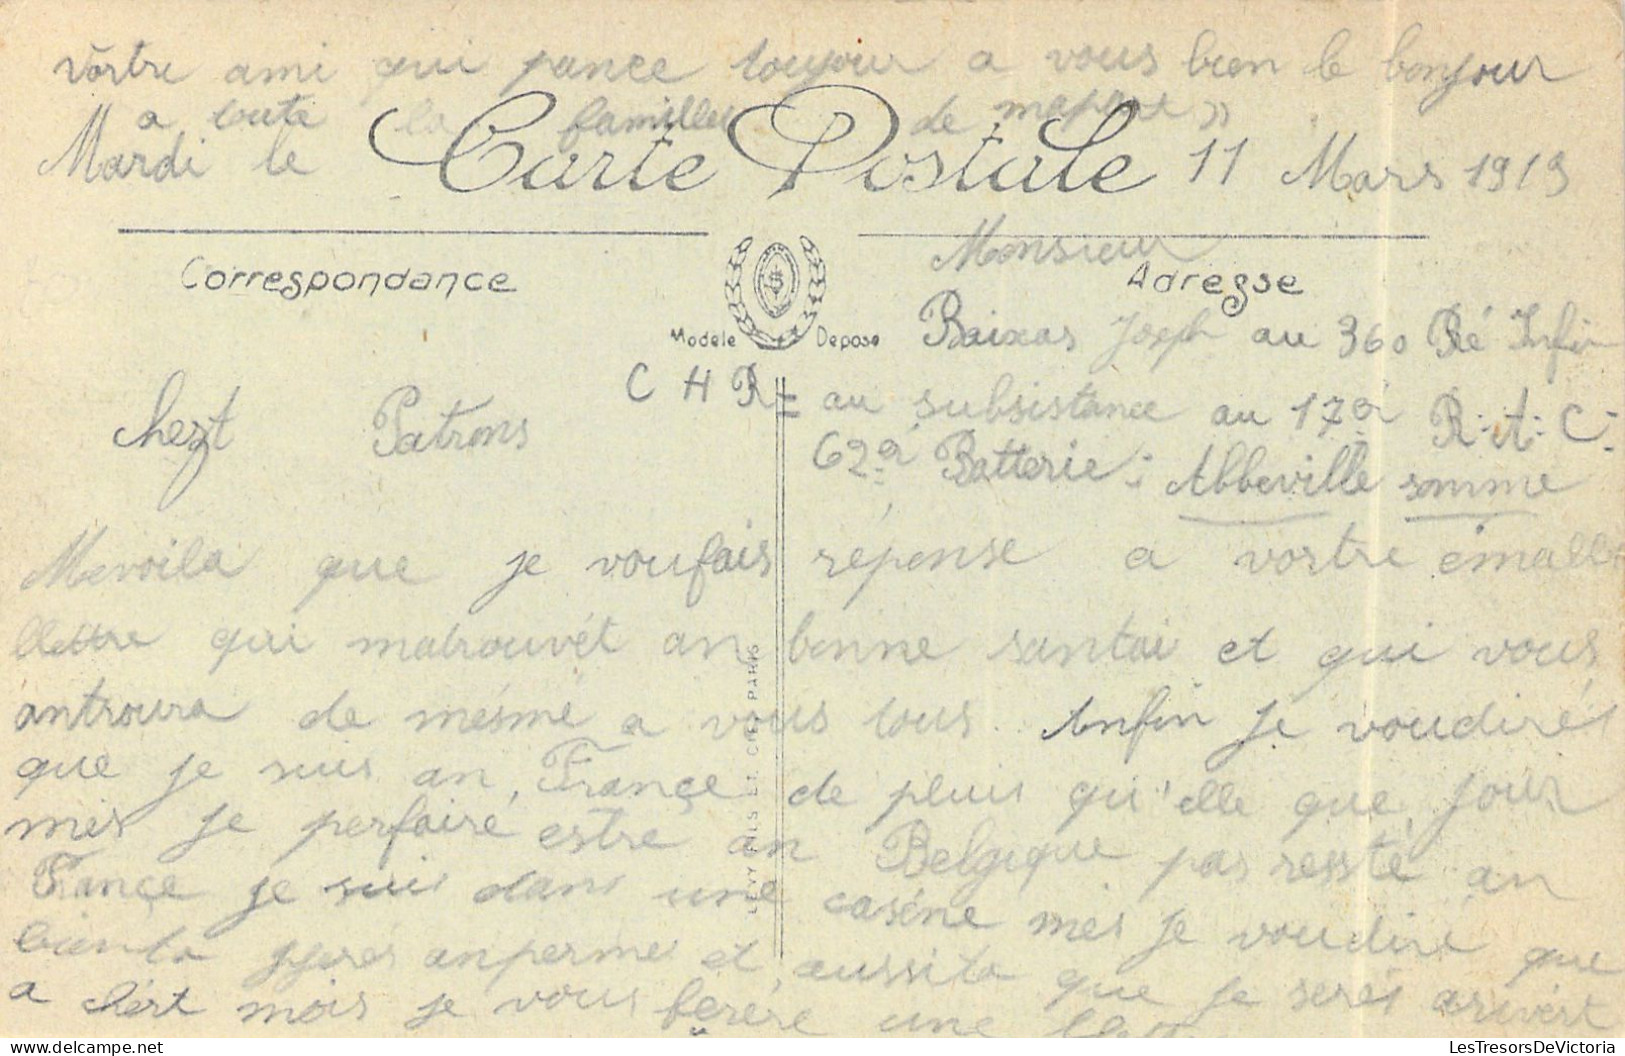 vôrtre ami qui pance toujour a vous bien le bonjour
a toute la familles de mapare »
Carte Postale
Mardi le 11 Mars 1919
Correspondance
Adresse
Modèle Déposé
Monsieur
Baixas Joseph au 360 Ré Infin
C H R = au subsistance au 17è R. A. C.
62è Batterie : Abbeville somme
chezt Patrons
Mevoila que je voufais réponse a vortre emable
llettre qui matrouvét an bonne santai et qui vous
antroura de mésme a vous tous. Anfin je voudirés
que je suis an França de pluis qu'elle que jour
mes je perfairé estre an Belgique pas ressté an
França je suis dans une caséne mes je voudiré que
bienta jyeres anpermes et aussita que je serés arivért
a chért mois je vous feréré une
LEVY FILS ET CIE PARIS
LesTresorsDeVictoria